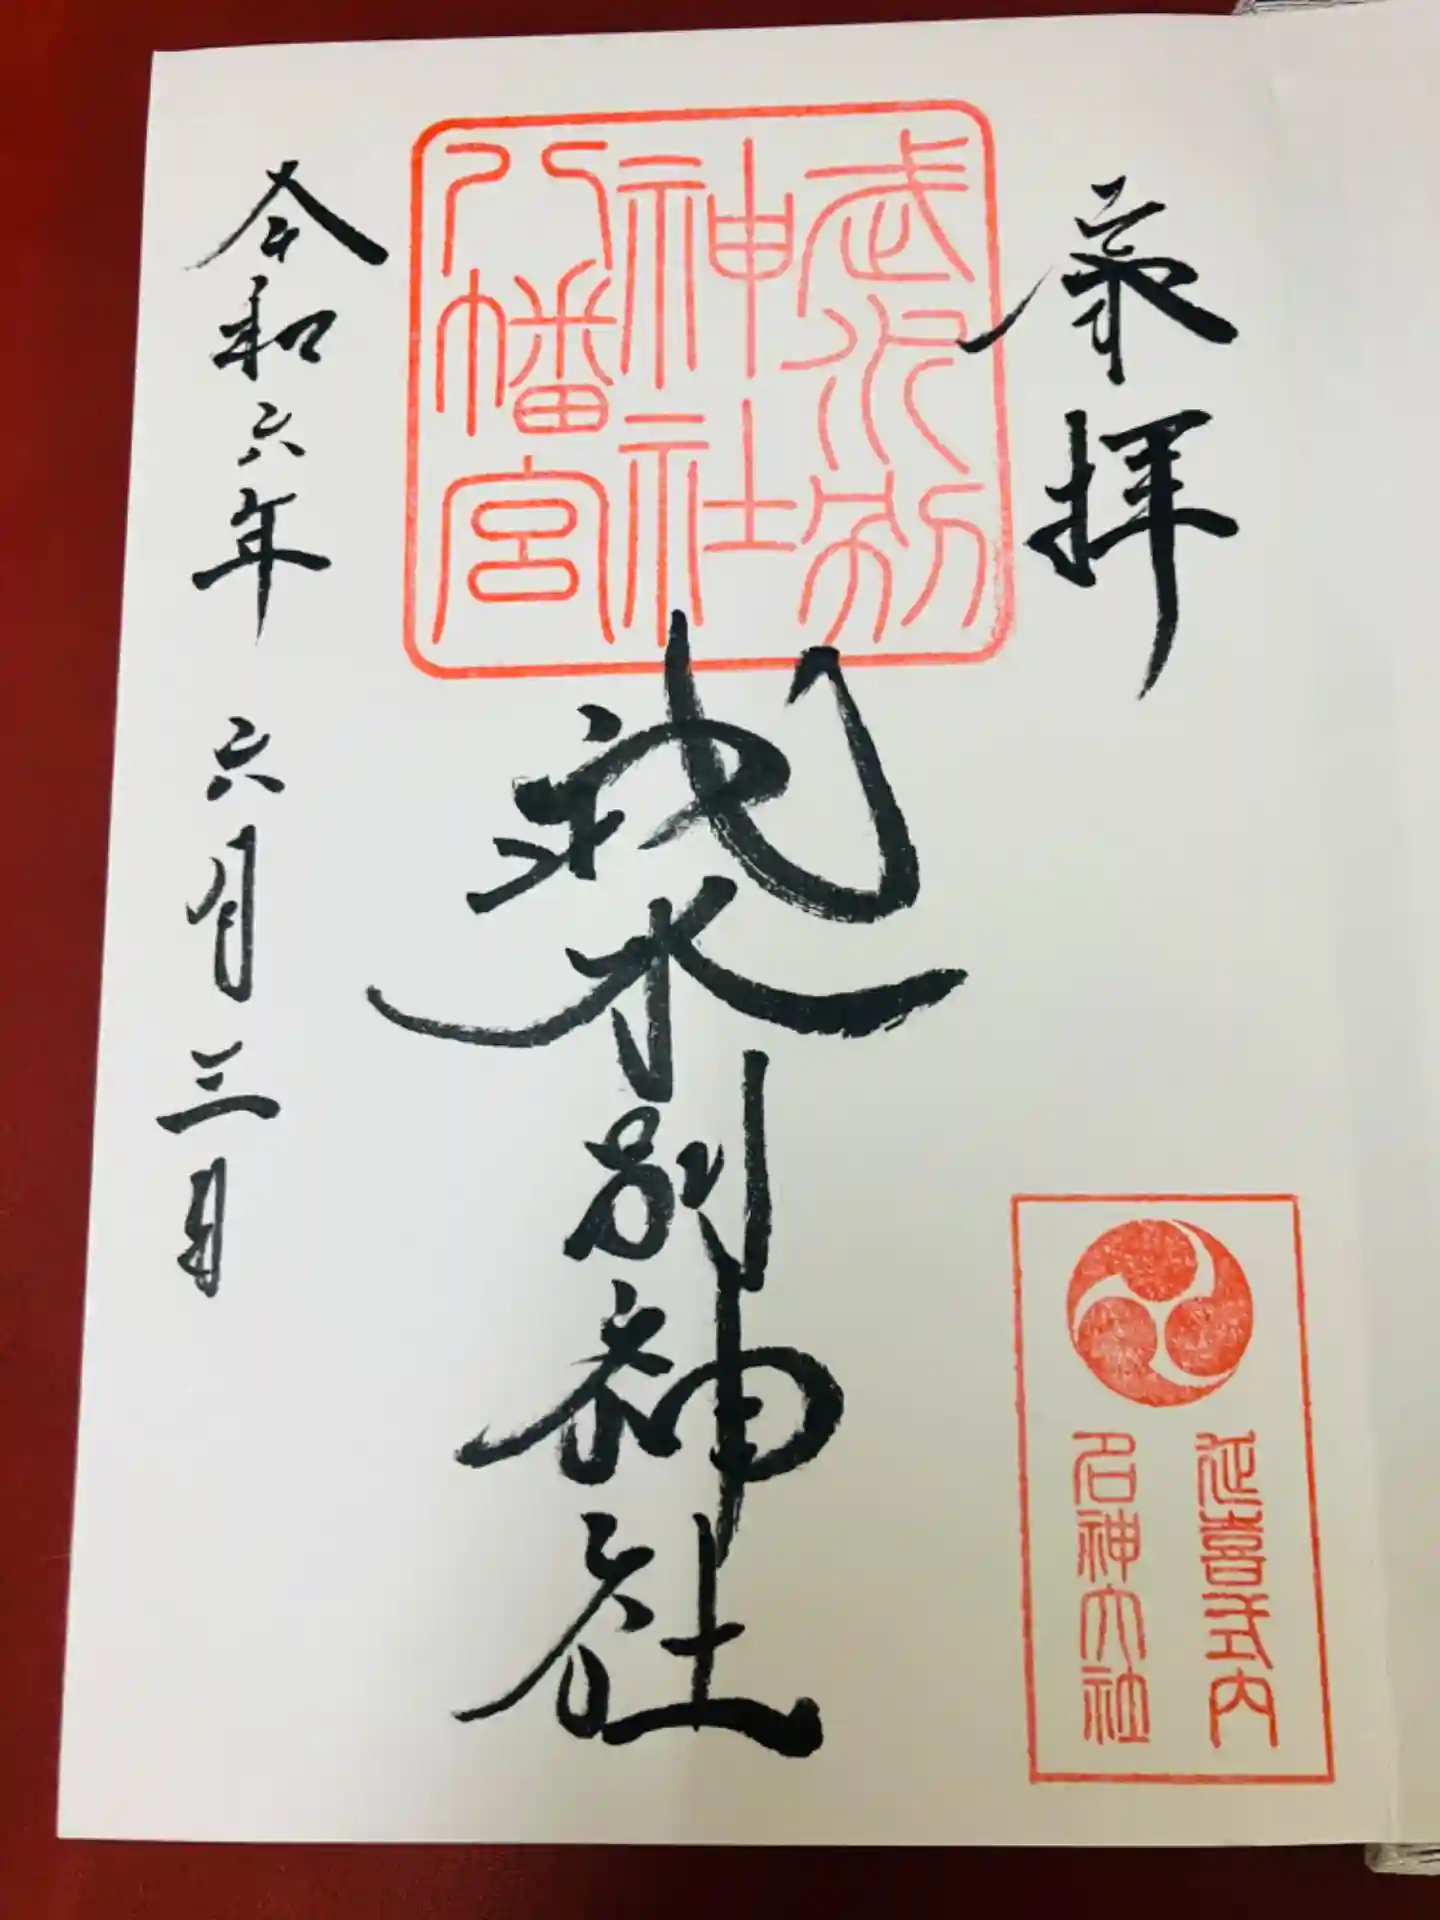 奉拝
武水別
神社
八幡宮
武水別神社
令和六年 六月三日
延喜式内
名神大社